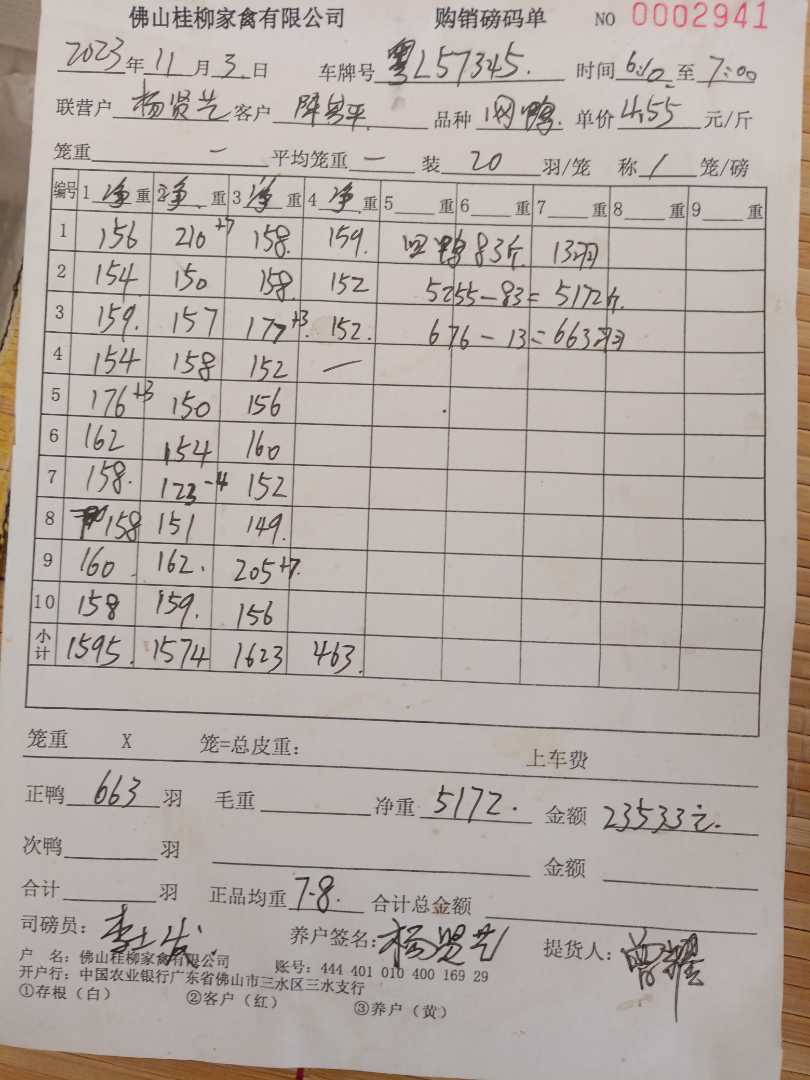 佛山桂柳家禽有限公司 购销磅码单 NO 0002941
2023年11月3日 车牌号 粤L57345. 时间 6:10 至 7:00
联营户 杨贤艺 客户 品种 鸭 单价 4.55 元/斤
笼重 一 平均笼重 一 装 20 羽/笼 称 1 笼/磅
编号 1 净 重 2 净 重 3 净 重 4 净 重 5 重 6 重 7 重 8 重 9 重
1 156 210+7 158. 159. 回鸭83斤. 13羽
2 154 150 158. 152 5255-83=5172斤.
3 159. 157 177+3. 152. 676-13=663羽
4 154 158 152 一
5 176+3 150 156
6 162 154 160
7 158. 123-4 152
8 158 151 149.
9 160 162. 205+7.
10 158 159. 156
小计 1595. 1574 1623 463.
笼重 X 笼=总皮重: 上车费
正鸭 663 羽 毛重 净重 5172. 金额 23533元.
次鸭 羽 金额
合计 羽 正品均重 7.8. 合计总金额
司磅员: 养户签名: 杨贤艺 提货人: 曾耀
户 名: 佛山桂柳家禽有限公司 账号: 444 401 010 400 169 29
开户行: 中国农业银行广东省佛山市三水区三水支行
①存根（白） ②客户（红） ③养户（黄）